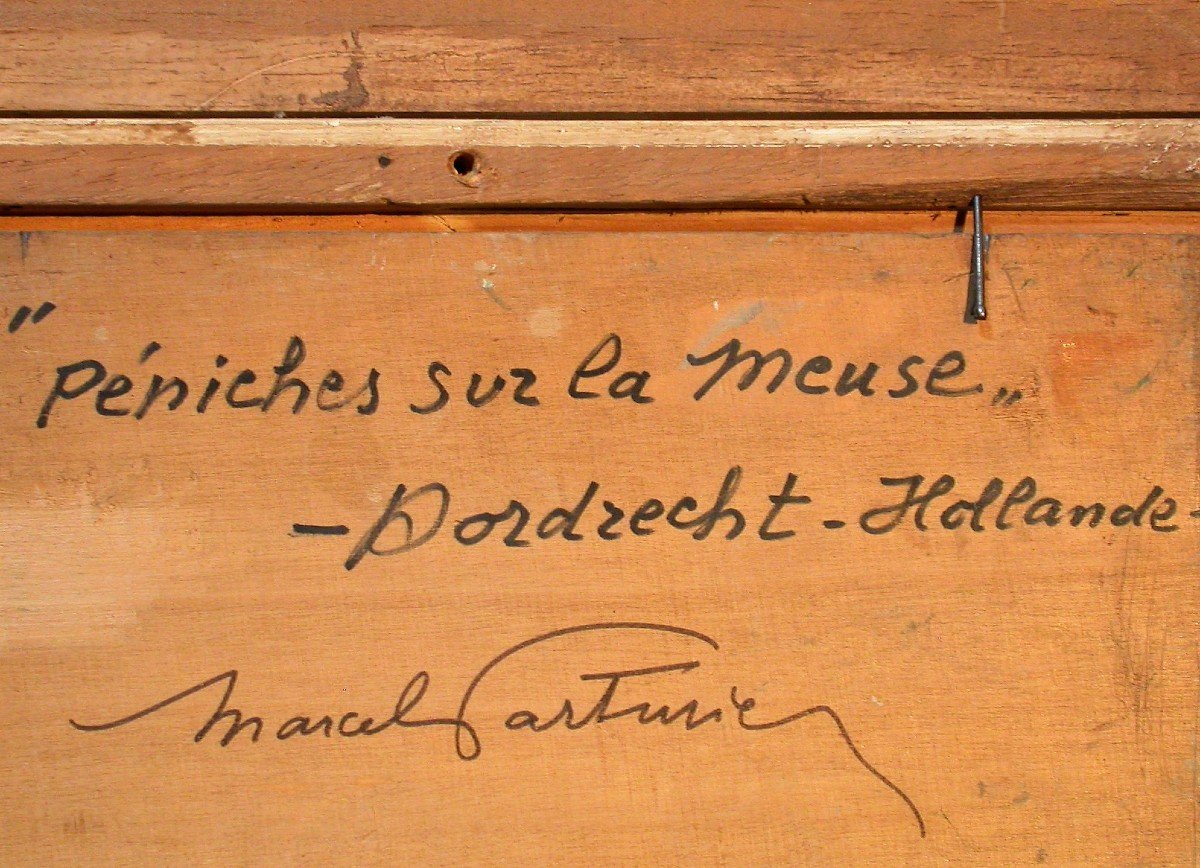 "Péniches sur la Meuse"
- Dordrecht - Hollande -
Marcel Parturier